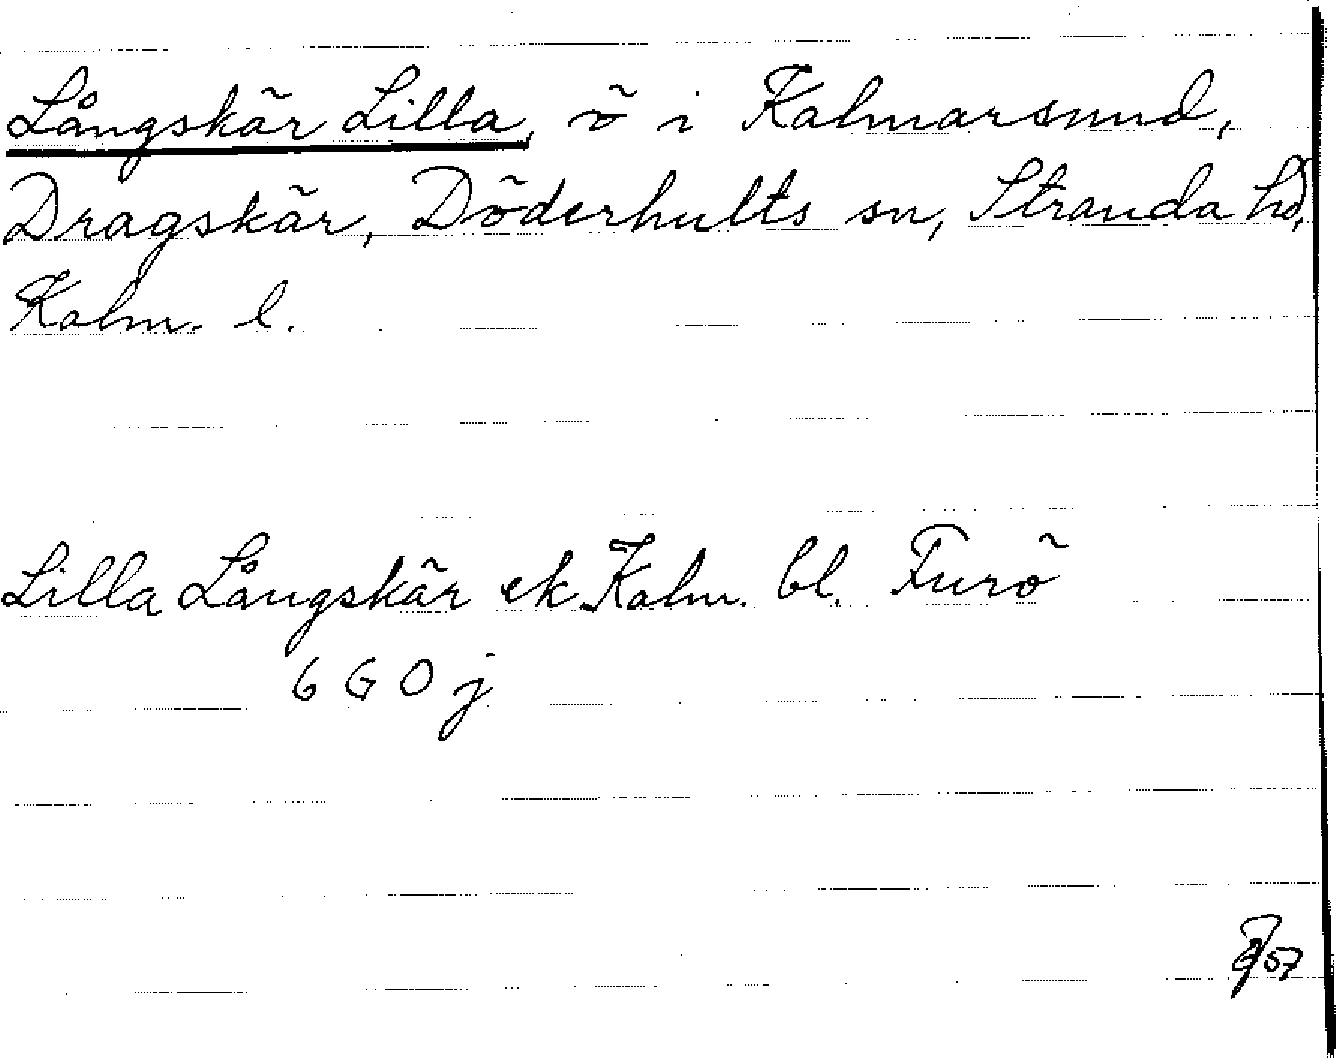 Långskär Lilla, ö i Kalmarsund,
Dragskär, Döderhults sn, Stranda hd,
Kalm. l.
Lilla Långskär ek Kalm. bl. Furö
6 G O j
57